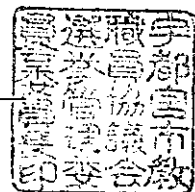 宇都宮市教
職員協議会
選挙管理委
員印